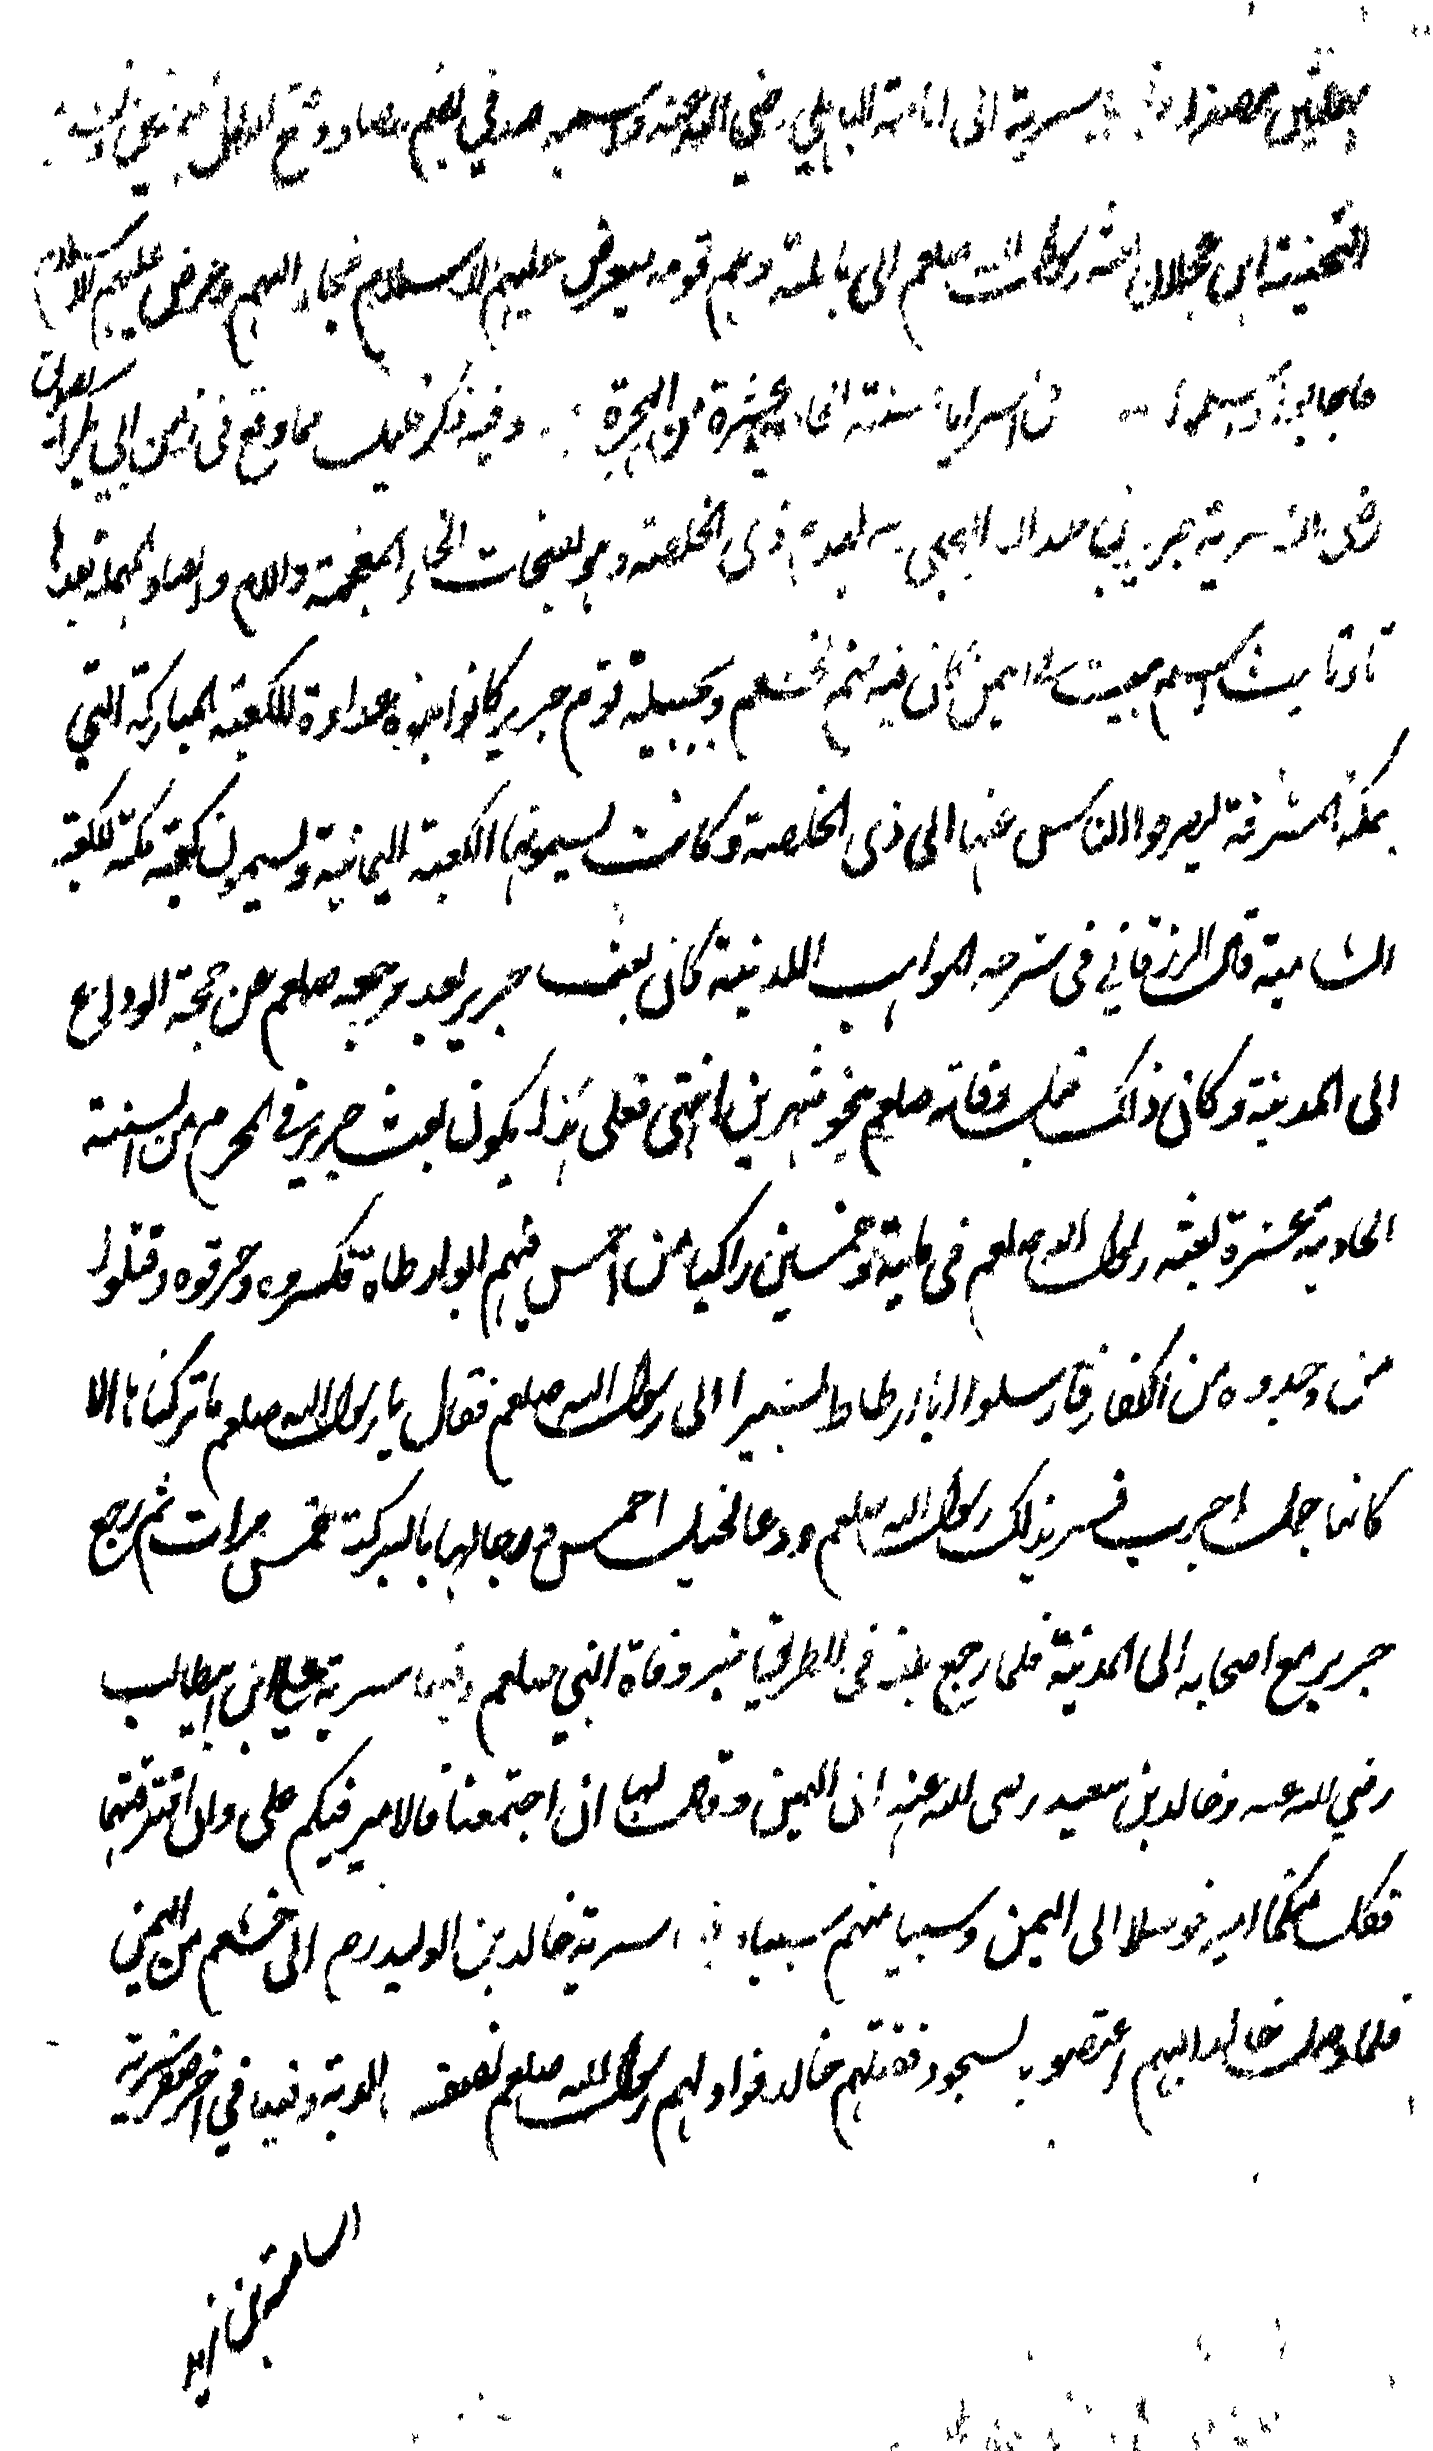 سرية ابى امامة الباهلي رضي الله عنه واسمه صدي بضم
التحتية ابن عجلان بعثه رسول الله صلعم الى باهلة وهم قومه ليعرض عليهم الاسلام فجاء اليهم وعرض عليهم الاسلام
فاجابوا واسلموا سنة الحادية عشرة من الهجرة وفيه ذكر قليل مما وقع في زمن ابي بكر
سرية جرير بن البجلي ذى الخلصة وهو بفتحات الخاء المعجمة واللام والصاد المهملة بعدها
تاء تانيث اسم بيت باليمن كان فيه صنم لخثعم وبجيلة قوم جرير كانوا عداوة للكعبة المباركة التي
بمكة المشرفة ليصرفوا الناس عنها الى ذى الخلصة وكانت يسمونها الكعبة اليمانية ويسمون كعبة مكة الكعبة
الشامية قال الزرقاني فى شرحه المواهب اللدنية كان بعث جرير بعد مرجعه صلعم من حجة الوداع
الى المدينة وكان ذلك قبل وفاته صلعم بنحو شهرين انتهى فعلى هذا يكون بعث جرير في المحرم من السنة
الحادية عشرة بعثه رسول الله صلعم فى ماية وخمسين راكبا من احمس فيهم ابو ارطاة فكسروه وحرقوه وقتلوا
من وجدوه من الكفار فارسلوا ابا ارطاط بشيرا الى رسول الله صلعم فقال يا رسول الله صلعم ما تركناها الا
كانها جمل اجرب فسر بذلك رسول الله صلعم ودعا لخيل احمس ورجالها بالبركة خمس مرات ثم رجع
جرير مع اصحابه الى المدينة فلما رجع بلغه فى الطريق خبر وفاة النبي صلعم وفيها سرية علي ابن ابيطالب
رضي الله عنه وخالد بن سعيد رضى الله عنه الى اليمن وقال لهما ان اجتمعتما فالامير فيكم على وان افترقتما
فكل منكما امير فوصلا الى اليمن وسبيا منهم سبيا سرية خالد بن الوليد رض الى خثعم من اليمن
فلما وصل خالد اليهم اعتصموا بالسجود فقتلهم خالد فوادهم رسول الله صلعم نصف الدية وفيها في اخر صفر سرية
اسامة بن زيد